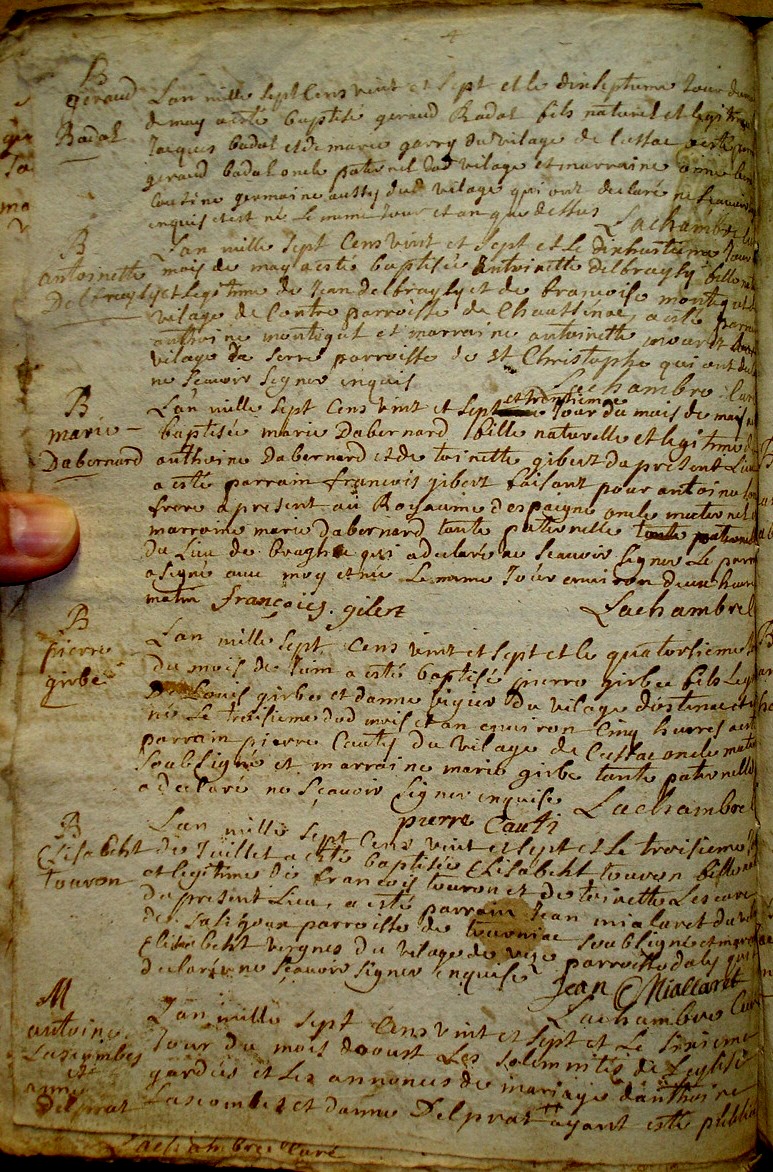 B
geraud
Badal
Lan mille sept Cens vint et sept et le dixseptieme Jour du
de may a esté baptisé geraud Badal fils naturel et legitime
Jacques badal et de marie garry du vilage de Cessac a esté
geraud badal oncle paternel dud vilage et marraine
Cousine germaine aussy dud vilage qui ont declaré ne sçauoir
enquis et est né Le meme Jour et an que dessus Lachambre
B
antoinette
Delbrayly
Lan mille sept Cens vint et sept et Le dixhuitieme Jour
mois de may a esté baptisée Antoinette delbrayly fille
et legitime de Jean delbrayly et de francoise
vilage de Contre parroisse de Chaussenac, a esté parrain
anthoine montiqut et marraine antoinette
vilage de Serre parroisse de St Christophe qui ont
ne Sçauoir Signer enquis Lachambre Curé
B
marie
Dabernard
Lan mille sept Cens vint et sept et trentieme Jour du mois de may a
baptisée marie Dabernard fille naturelle et legitime
anthoine Dabernard et de toinette gibert du present Lieu
a esté parrain francois gibert faisant pour antoine
frere a present au Royaume despaigne oncle maternel
marraine marie dabernard tante paternelle
du Lieu de qui a declaré ne Sçauoir Signer Le parrain
a signé auec moy et née Le meme Jour enuiron deux heures
matin françois gibert Lachambre
B
pierre
girbe
Lan mille sept Cens vint et sept et le quatorsieme
du mois de Juin a esté baptisé pierre girbe fils
Louis girbe et danne viguer du vilage
né Le troisieme dud mois et an enuiron Cinq heures a esté
parrain pierre Cauty du vilage de Cessac oncle
Soubsigné et marraine marie girbe tante paternelle
a declaré ne Sçauoir Signer enquise Lachambre
pierre Cauti
B
Elisabeht
touron
Lan mille sept Cens vint et sept et Le troisieme
de Juillet a esté baptisée Elisabeht touron fille
et legitime de françois touron et de toinette Lescure
du present Lieu, a esté parrain Jean mialaret du
de parroisse de tourniac Soubsigné et
Elisabeht vergnes du vilage de parroisse dally qui
declaré ne Sçauoir signer enquise Jean Miallaret
Lachambre Curé
M
antoine
Lascombes
et
anne
Delprat
Lan mille sept Cens vint et sept et Le sixieme
Jour du mois daoust Les solemnités de Leglise
gardées et Les annonces de mariage danthoine
Lascombes et danne Delprat ayant esté
Lachambre Curé